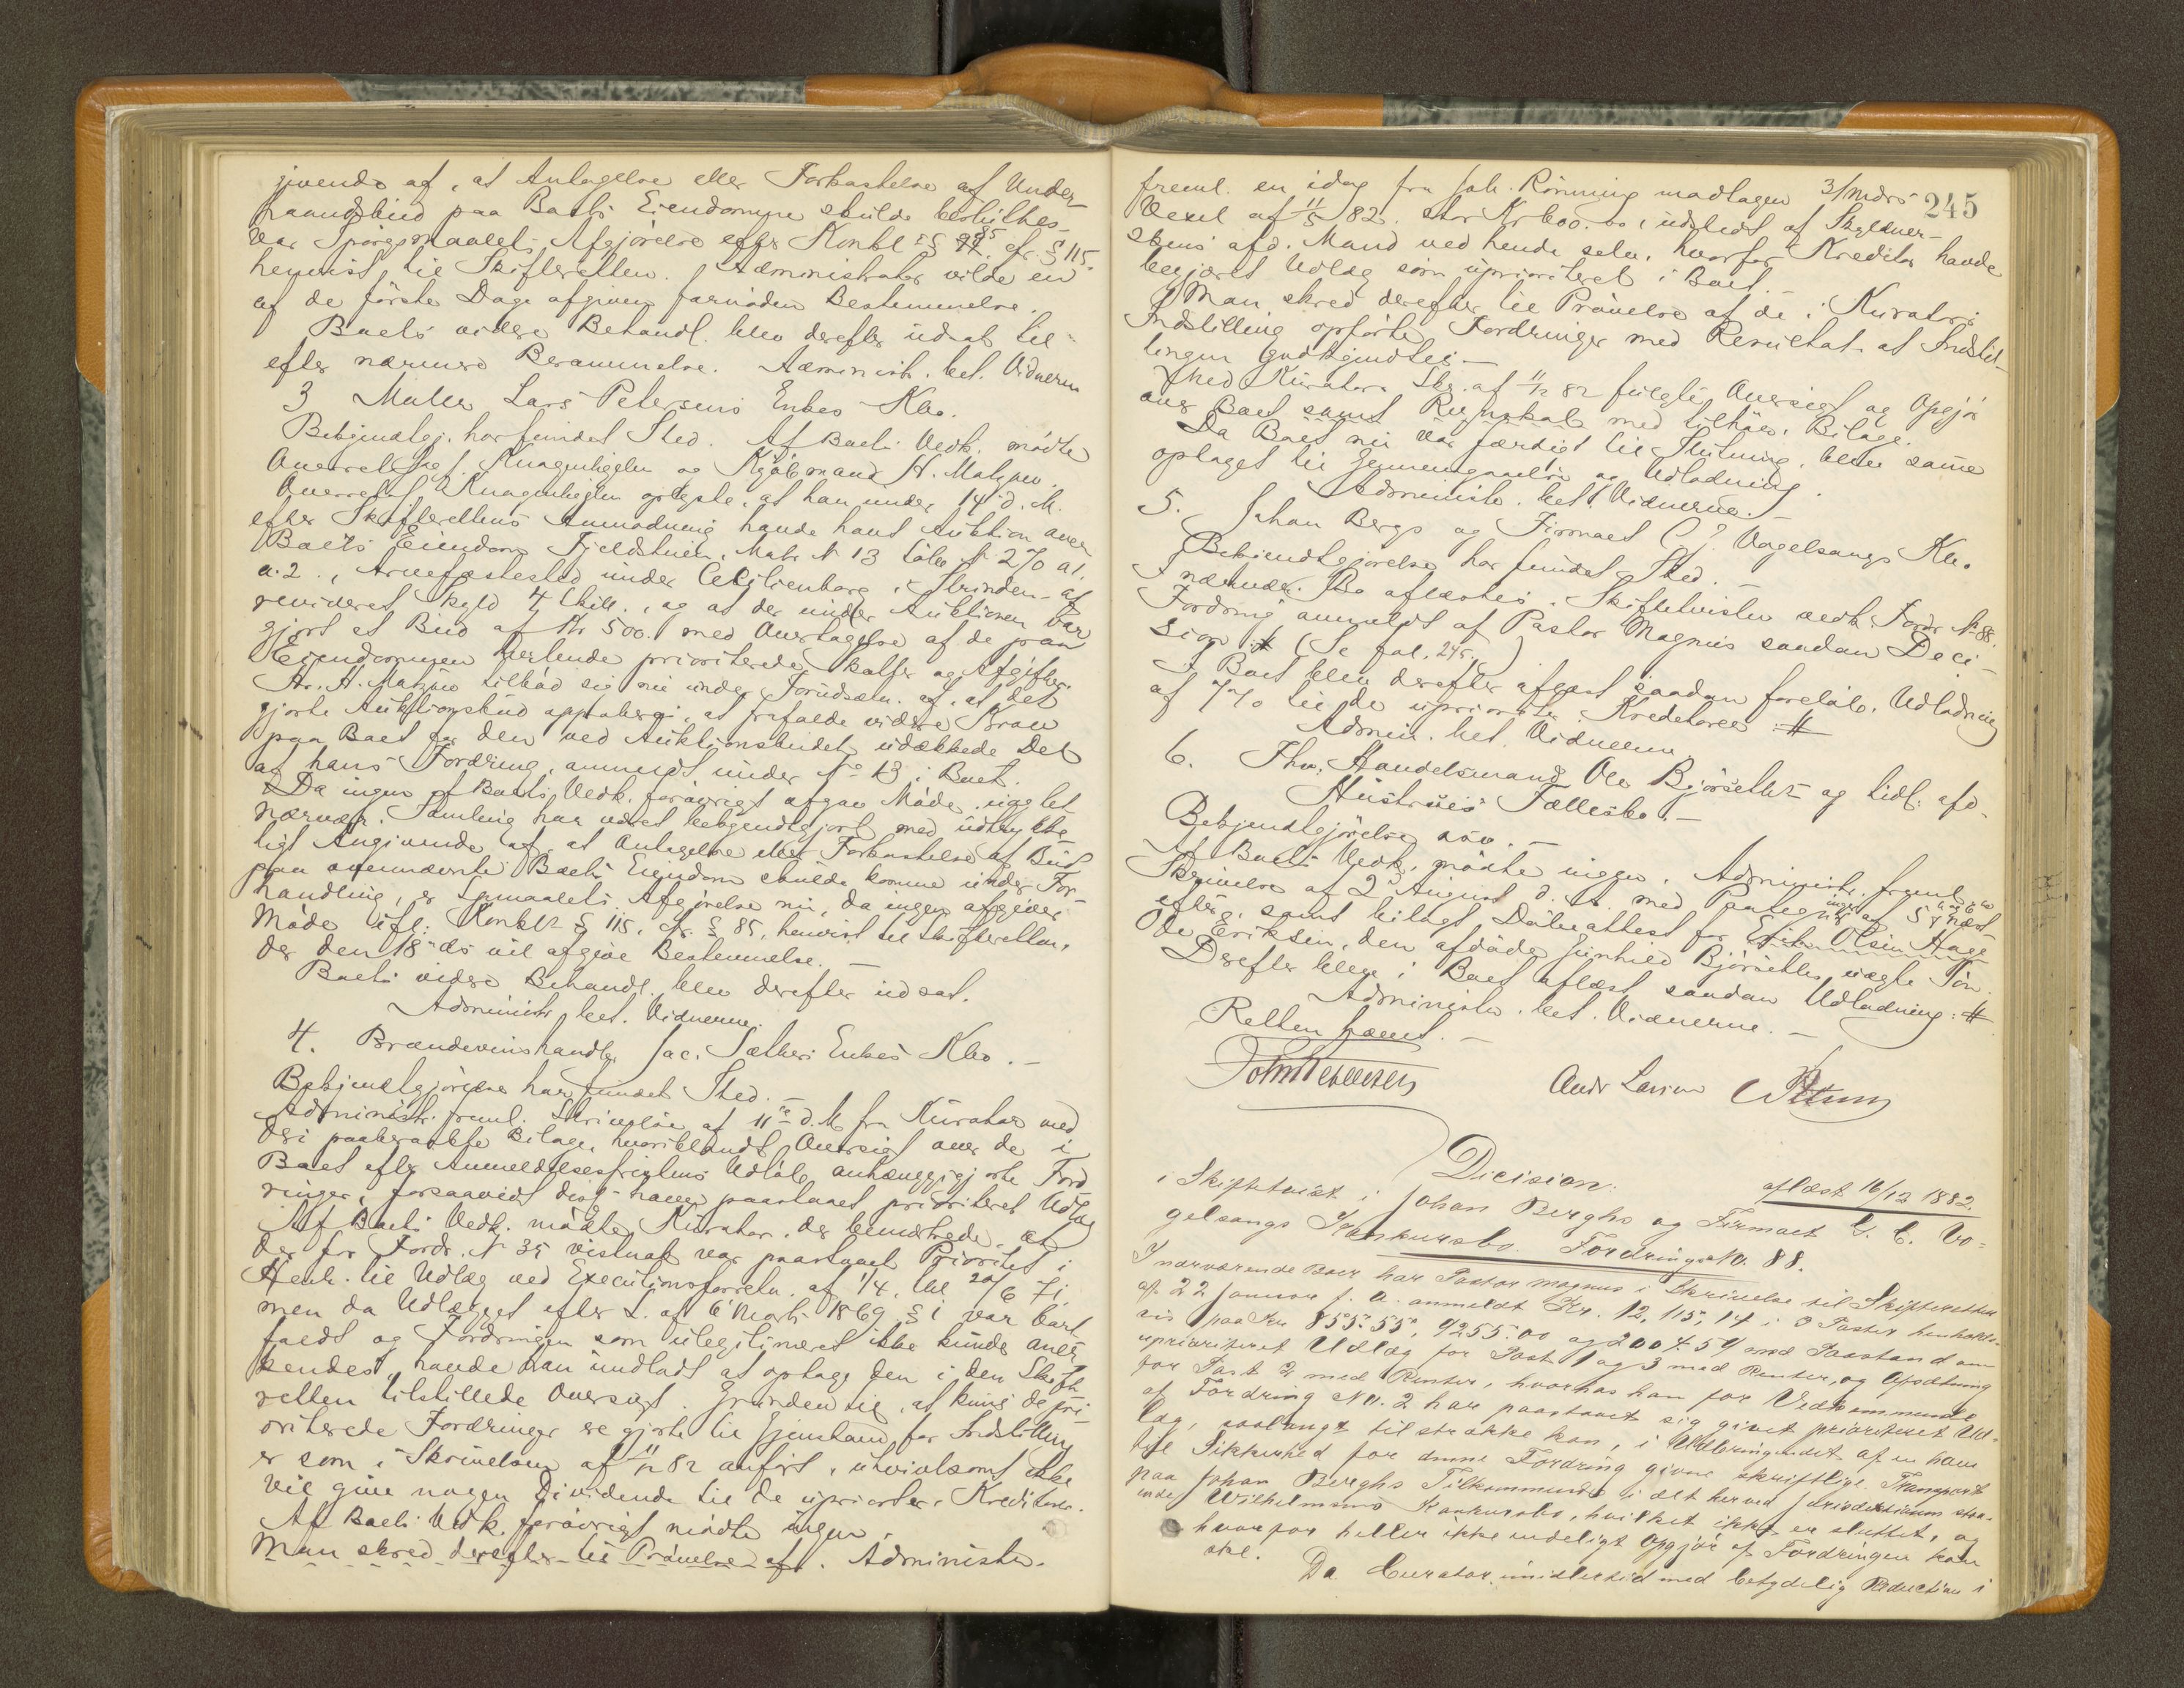 givende af, at Antagelse eller Forkastelse af Under-
haandsbud paa Boets Eiendomme skulde besluttes.
Var Spörgsmaalets Afgjörelse efter Konkl. §§ 85 cfr. § 115.
henvist til Skifteretten. Administrator vilde en
af de förste Dage afgive fornöden Bestemmelse.
Boets videre Behandl. blev derefter udsat til
efter nærmere Berammelse. Administr. bet. Vidnerne
3 Maler Lars Petersens Enkes Kbo.
Bekjendtgj. har fundet Sted. Af Boets Vedk. mödte
Overretssagf. Knagenhjelm og Kjöbmand A. Matzow.
Overretssagf. Knagenhjelm oplyste, at han under 14de d. M.
efter Skifterettens Anmodning havde havt Auktion over
Boets Eiendom Fjeldstuen, Matr. N 13 Löbe N 270 a1.
a. 2., Arvefæstested under Cecilienborg i Strinden af
revideret Skyld 4 Skill., og at der under Auktionen var
gjort et Bud af Kr 500. med Overtagelse af de paa
Eiendommen heftende prioriterede Skatter og Afgifter.
Hr. A. Matzow tilböd sig nu under Forudsætn. af, at det
gjorte Auktionsbud approberes, at frafalde videre Krav
paa Boet for den ved Auktionsbudet udækkede Del
af hans Fordring, anmeldt under No 13 i Boet.
Da ingen af Boets Vedk. forövrigt afgav Möde, uagtet
nærvær. Samling har været bekjendtgjort med udtrykke-
ligt Angivende af, at Antagelse eller Forkastelse af Bud
paa ovennævnte Boets Eiendom skulde komme under For-
handling, er Spmaalets Afgjörelse nu, da ingen afgiver
Möde ifl. Konkl. § 115, cfr. § 85, henvist til Skifteretten,
der den 18de ds vil afgive Bestemmelse. —
Boets videre Behandl. blev derefter udsat.
Administr. bet. Vidnerne.
4. Brændevinshandler Jac. Sæthers Enkes Kbo. —
Bekjendtgjörelse har fundet Sted. —
Administr. freml. Skrivelse af 11te d. M. fra Kurator med
deri paaberaabte Bilage, hvoriblandt Oversigt over de i
Boet efter Anmeldelsesfristens Udlöb anhængiggjorte Ford
ringer, forsaavidt disse haves paastaaet prioriteret Udlæg
Af Boets Vedk. mödte Kurator, der bemærkede, at
der for Fordr. N 35 vistnok var paastaaet Prioritet i
Henh. til Udlæg ved Executionsforretn. af 1/4, 20/6 71,
men da Udlægget efter L. af 6 Marts 1869 § 1 var bort
faldt og Fordringen som ulegitimeret ikke kunde aner
kendes, havde han undladt at optage den i den Skifte
retten tilstillede Oversigt. Grunden til, at kuns de pri-
oriterede Fordringer ere gjorte til Gjenstand for Indstilling
er som i Skrivelsen af 11/12 82 anfört, utvivlsomt ikke
vil give nogen Dividende til de uprioriter. Kreditorer.
Af Boets Vedk. forövrigt mödte ingen.
Man skred derefter til Prövelse af. Administr.
245
freml. en idag fra Joh. Rönning modtagen 3/Mdrs
Vexel af 11/5 82. stor Kr 600.00, udstedt af Skyldner-
skens afd. Mand ved hende selv, hvorfor Kreditor havde
begjæret Udlæg som uprioriteret i Boet. —
Man skred derefter til Prövelse af de i Kurators
Indstilling opförte Fordringer med Resultat at Indstil-
lingen godkjendtes. —
Med Kurators Skr. af 11/12 82 fulgte Oversigt og Opgjör
over Boet samt Regnskab med tilhör. Bilage.
Da Boet nu var færdigt til Slutning, blev samme
optaget til Gjennemgaaelse og Udlodning.
Administr. bet. Vidnerne. —
5. Johan Bergs og Firmaet C. J. Vogelsangs Kbo.
Bekjendtgjörelse har fundet Sted. —
I nærvær. Bo aflæstes i Skiftetvisten vedk. Fordr. N 88.
Fordring anmeldt af Pastor Magnus saadan Deci-
sion # (Se fol. 245.)
I Boet blev derefter aflæst saadan foreløb. Udlodning
af 7 % til de uprioriter. Kreditorer #
Admin. bet. Vidnerne
6. Fhv. Handelsmand Ole Bjørseths og tidl. afd.
Hustrues Fællesbo. —
Bekjendtgjörelse osv. —
Af Boets Vedk. mödte ingen. Administr. freml.
Skrivelse af 2 August d. A. med Paategninger af 5 næst-
efter, samt bilagt Döbeattest for Erik Olsen Hage
Ole Eriksen, den afdöde Gunhild Bjørseths uægte Sön.
Derefter blev i Boet aflæst saadan Udlodning: #
Administr. bet. Vidnerne. —
Retten hævet. —
Andr Larsen
Dicision.
aflæst 16/12 1882.
i Skiftetvist i Johan Berghs og Firmaet C. C. Vo-
gelsangs Konkursbo. Fordring No. 88.
I nærværende Boer har Pastor Magnus i Skrivelse til Skifteretten
af 22 Januar f. A. anmeldt Kr. 12,115,14 i 3 Poster henholds-
vis paa Kr 855.55, 9255.00 og 2004.59 med Paastand om
uprioriteret Udlæg for Post 1 og 3 med Renter, og Afsætning
for Post 2 med Renter, hvorhos han for Vedkommende
af Fordring No. 2 har paastaaet sig givet prioriteret Ud-
læg, saalangt tilstrække kan, i Udbringendet af en ham
till Sikkerhed for denne Fordring given skriftlige Transport
paa Johan Berghs Tilkommende i det herved Jurisdiktionen sva-
ende Wilhelmsens Konkursbo, hvilket ikke er sluttet, og
hvorfor heller ikke endeligt Opgjör af Fordringen kan
ske.
Da Curator imidlertid med betydelig Reduction i